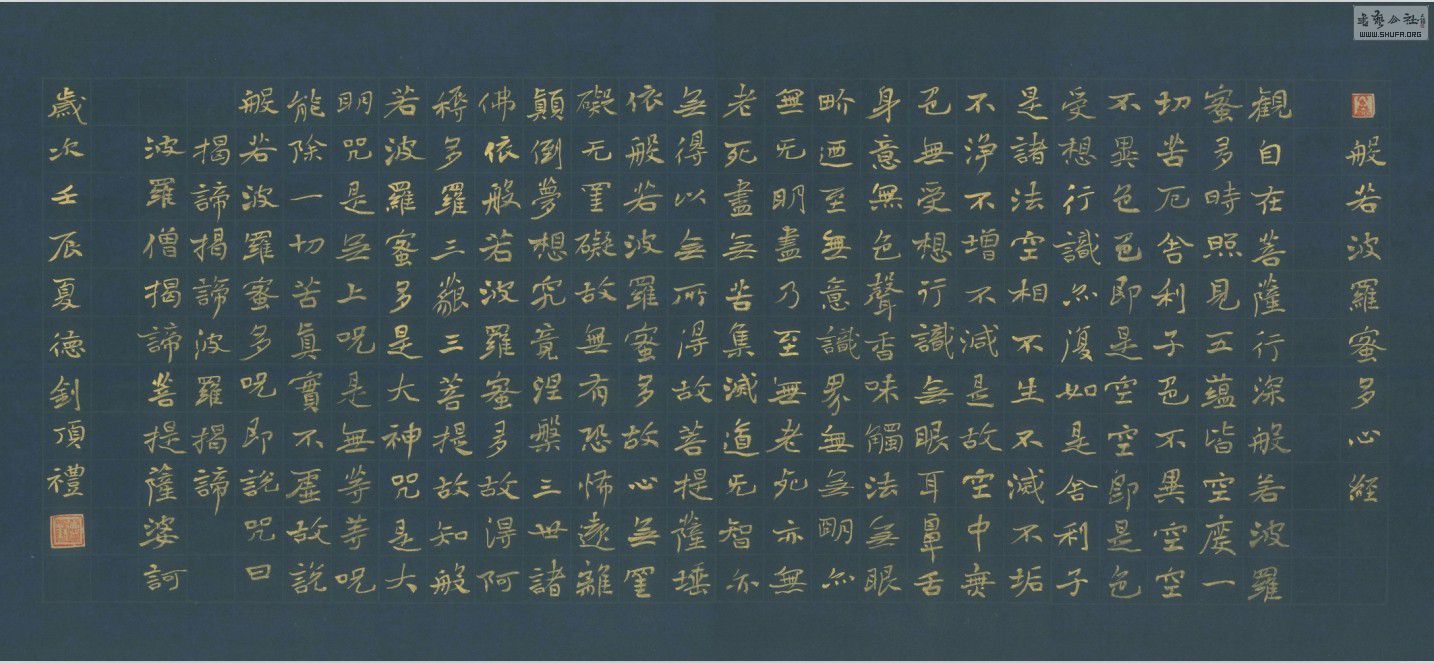 書藝公社
WWW.SHUFA.ORG
般若波羅蜜多心經
觀自在菩薩行深般若波羅
蜜多時照見五蘊皆空度一
切苦厄舍利子色不異空空
不異色色即是空空即是色
受想行識亦復如是舍利子
是諸法空相不生不滅不垢
不淨不增不減是故空中無
色無受想行識無眼耳鼻舌
身意無色聲香味觸法無眼
畍迺至無意識界無無明亦
無无明盡乃至無老死亦無
老死盡無苦集滅道无智亦
無得以無所得故菩提薩埵
依般若波羅蜜多故心無罣
礙无罣礙故無有恐怖遠離
顛倒夢想究竟涅槃三世諸
佛依般若波羅蜜多故得阿
耨多羅三藐三菩提故知般
若波羅蜜多是大神咒是大
明咒是無上咒是無等等咒
能除一切苦真實不虛故說
般若波羅蜜多咒即說咒曰
揭諦揭諦波羅揭諦
波羅僧揭諦菩提薩婆訶
歲次壬辰夏德釗頂禮